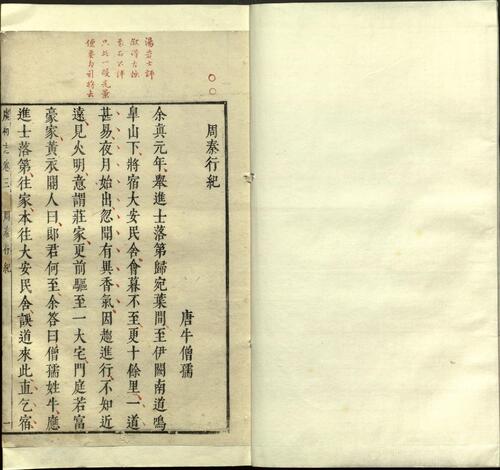 湯若士評
周秦行紀
唐牛僧孺
余真元年舉進士落第歸宛葉間至伊闕南道鳴
臯山下將宿大安民舍會暮不至更十餘里一道
甚易夜月始出忽聞有異香氣因趨進行不知近
遠見火明意謂莊家更前驅至一大宅門庭若富
豪家黃衣閽人曰郞君何至余答曰僧孺姓牛應
進士落第往家本往大安民舍誤道來此直乞宿
虞初志卷三 周秦行紀 一